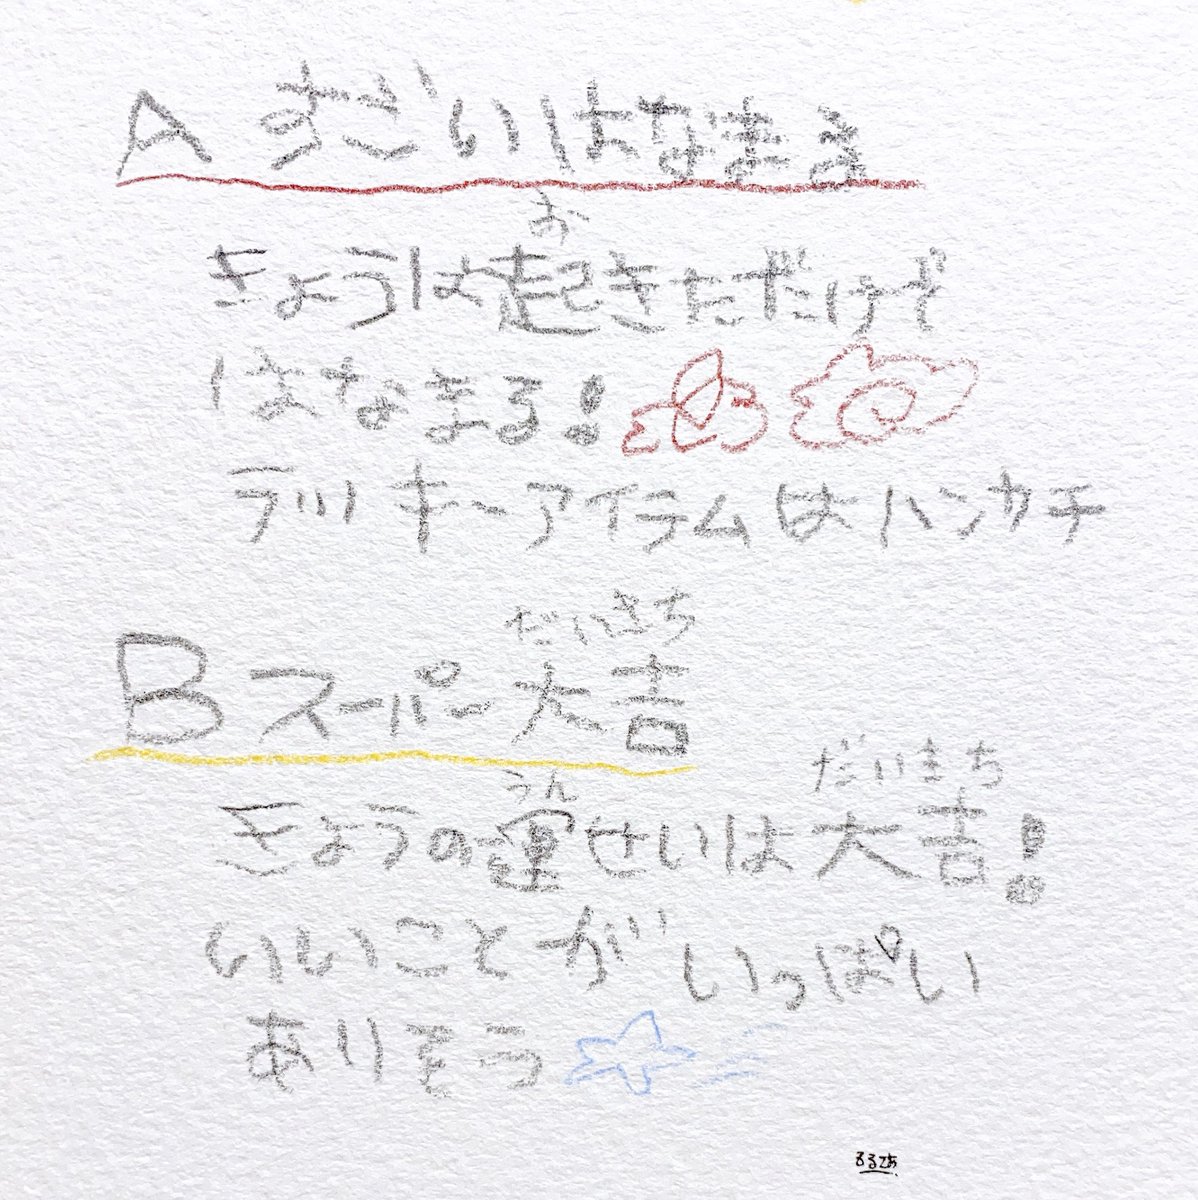 A すごいはなまる
お
きょうは起きただけで
はなまる!
ラッキーアイテムはハンカチ
だいきち
B スーパー大吉
うん
だいきち
きょうの運せいは大吉!
いいことがいっぱい
ありそう
るるてあ